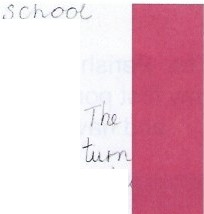 school
The
turn